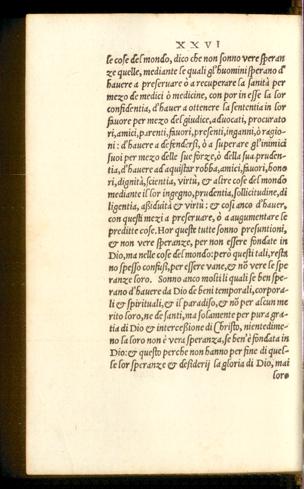 XXVI
le cose del mondo, dico che non sonno vere speran
ze quelle, mediante le quali gl'huomini sperano d'
hauere a preseruare ò a recuperare la sanità per
mezo de medici ò medicine, con por in esse la lor
confidentia, d'hauer a ottenere la sententia in lor
fauore per mezo del giudice, aduocati, procurato
ri, amici, parenti, fauori, presenti, inganni, ò ragio-
ni: d'hauere a defendersi, ò a superare gl'inimici
suoi per mezo delle sue forze, ò della sua pruden-
tia, d'hauere ad aquistar robba, amici, fauori, hono
ri, dignità, scientia, virtù, & altre cose del mondo
mediante il lor ingegno, prudentia, sollicitudine, di
ligentia, aßiduità & virtù: & così anco d'hauer,
con questi mezi a preseruare, ò a augumentare le
preditte cose. Hor queste tutte sonno presuntioni,
& non vere speranze, per non essere fondate in
Dio, ma nelle cose del mondo: però questi tali, resta
no spesso confusi, per essere vane, & nō vere le spe
ranze loro. Sonno anco molti li quali se ben spe-
rano d'hauere da Dio de beni temporali, corpora-
li & spirituali, & il paradiso, & nō per alcun me
rito loro, ne de santi, ma solamente per pura gra-
tia di Dio & interceßione di Christo, nientedime-
no la loro non è vera speranza, se ben è fondata in
Dio: & questo perche non hanno per fine di quel-
le lor speranze & desiderij la gloria di Dio, mai
loro